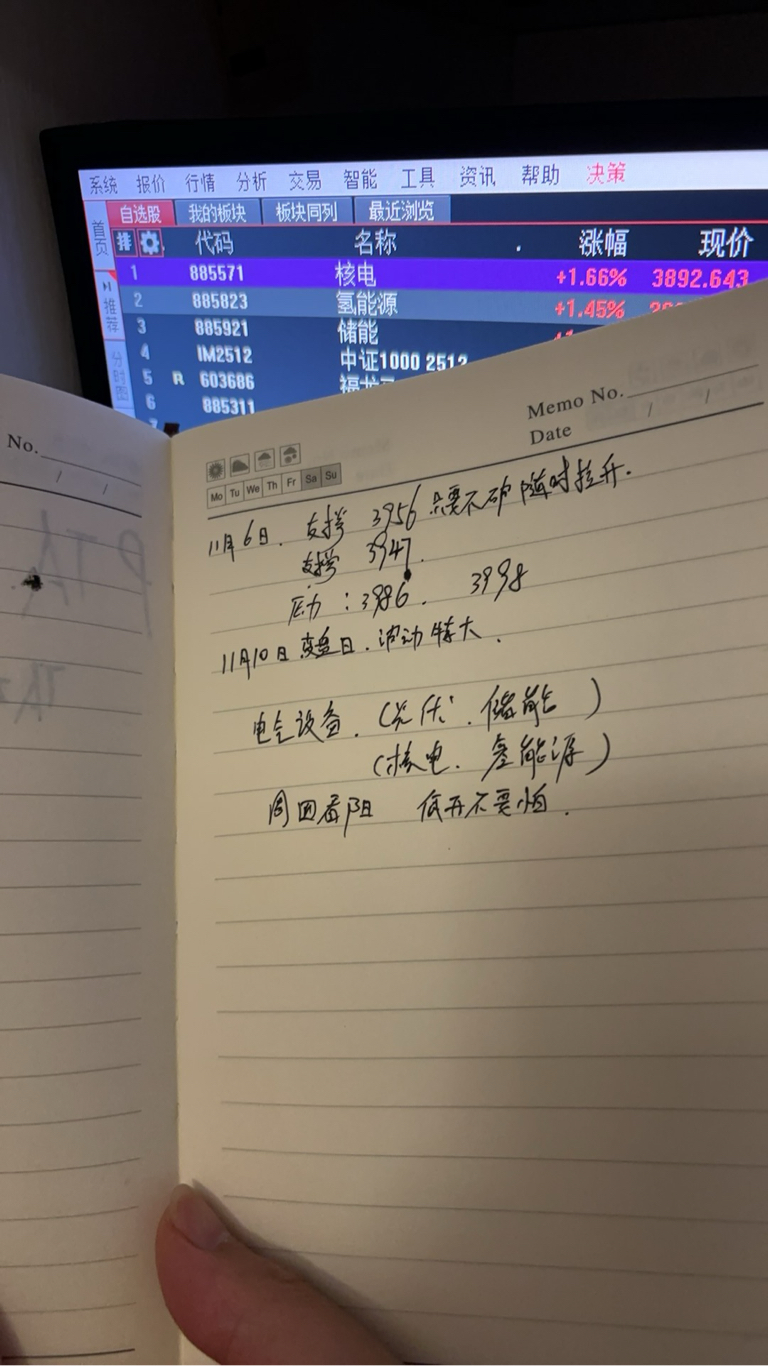 系统 报价 行情 分析 交易 智能 工具 资讯 帮助 决策
首页
自选股 我的板块 板块同列 最近浏览
排 代码 名称 涨幅 现价
1 885571 核电 +1.66% 3892.643
2 885823 氢能源 +1.45%
3 885921 储能
4 IM2512 中证1000 2512
5 R 603686
6 885311
推荐
分时图
No.
/ /
Memo No.
Date / /
Mo Tu We Th Fr Sa Su
11月6日. 支撑 3956 只要不破 随时拉升.
支撑 3947.
压力:3986. 3998
11月10日 变盘日.波动特大.
电气设备.(光伏、储能)
(核电.氢能源)
周四看阳 低开不要怕.